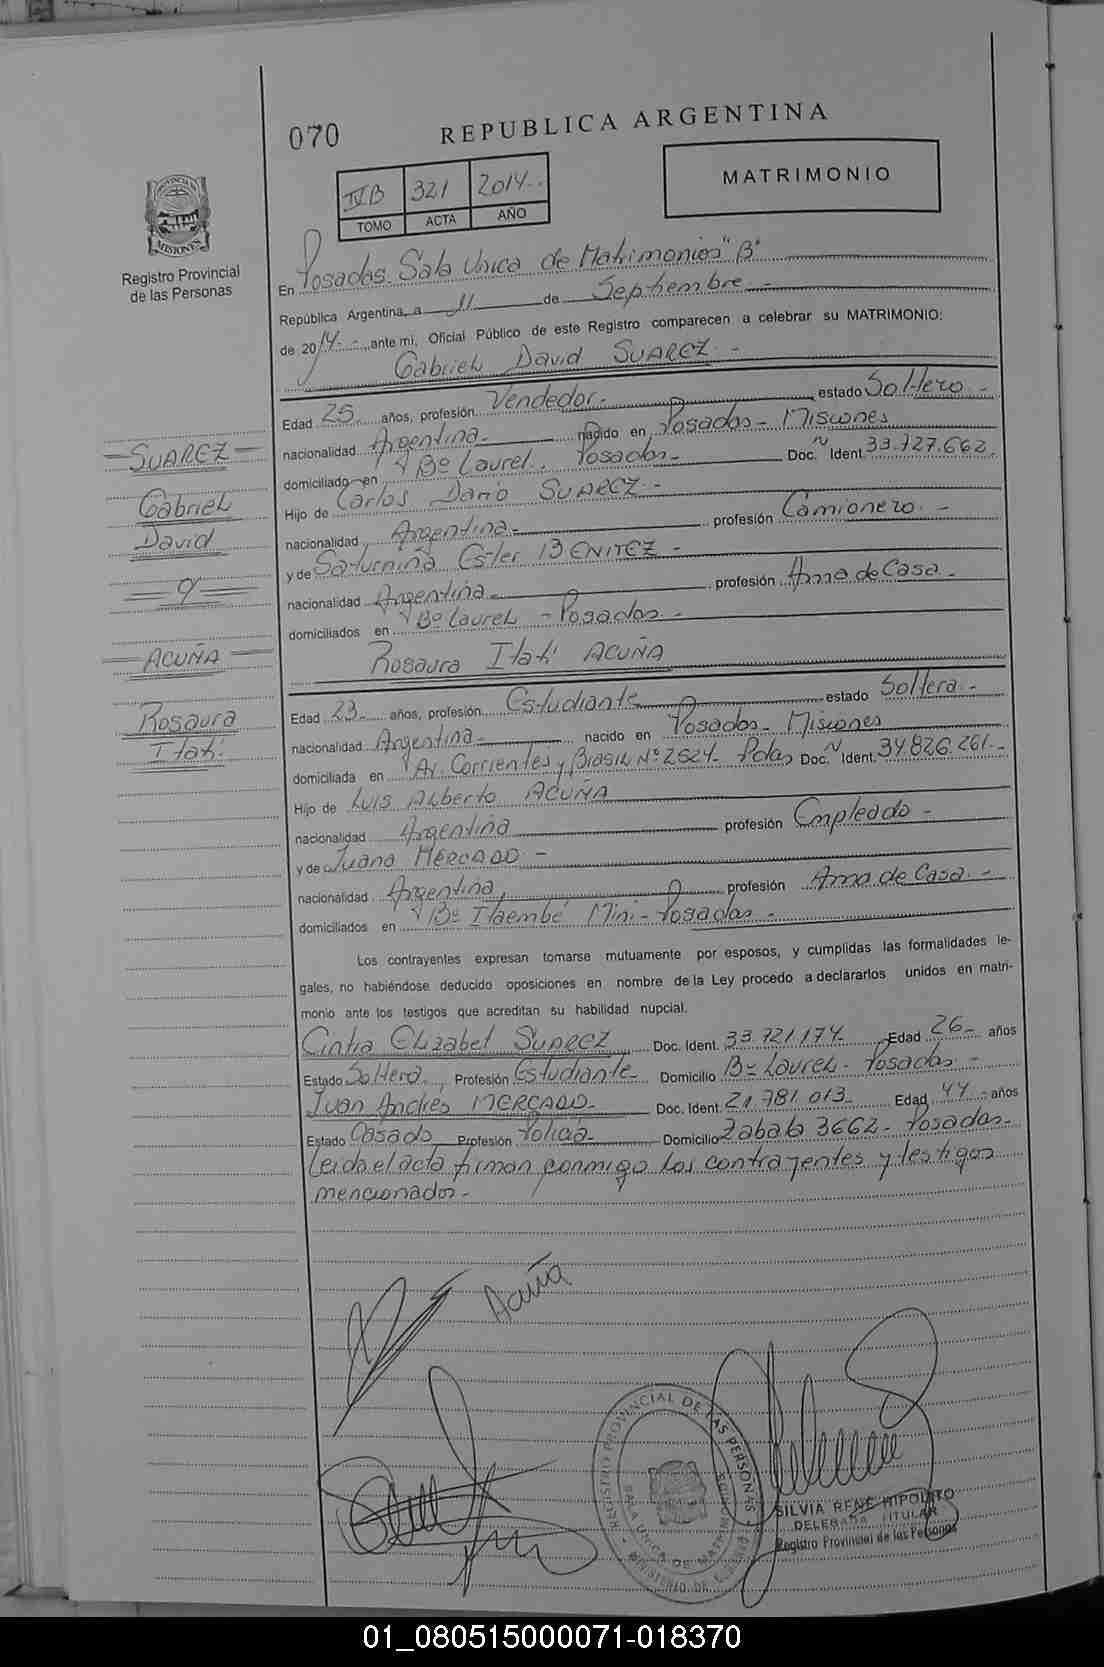 070
REPUBLICA ARGENTINA
IVB 321 2014
TOMO ACTA AÑO
MATRIMONIO
PROVINCIA DE MISIONES
Registro Provincial
de las Personas
En Posadas Sala Unica de Matrimonios "B"
República Argentina, a 11 de Septiembre -
de 2014 - ante mi, Oficial Público de este Registro comparecen a celebrar su MATRIMONIO:
Gabriel David SUAREZ -
Edad 25 años, profesión Vendedor - estado Soltero -
nacionalidad Argentina - nacido en Posadas - Misiones
domiciliado en Bº Laurel. Posadas - Doc. Ident. 33.727.662.
Hijo de Carlos Dario SUAREZ -
nacionalidad Argentina - profesión Camionero -
y de Saturnina Ester BENITEZ -
nacionalidad Argentina - profesión Ama de Casa -
domiciliados en Bº Laurel - Posadas -
Rosaura Itatí ACUÑA
Edad 23 años, profesión Estudiante estado Soltera -
nacionalidad Argentina - nacido en Posadas - Misiones
domiciliada en Av. Corrientes y Brasil Nº 2524 - Pdas Doc. Ident. 34.826.261 -
Hijo de Luis Alberto ACUÑA
nacionalidad Argentina profesión Empleado -
y de Juana MERCADO -
nacionalidad Argentina, profesión Ama de Casa -
domiciliados en Bº Itaembé Mini - Posadas -
Los contrayentes expresan tomarse mutuamente por esposos, y cumplidas las formalidades le-
gales, no habiéndose deducido oposiciones en nombre de la Ley procedo a declararlos unidos en matri-
monio ante los testigos que acreditan su habilidad nupcial.
Cintia Elizabet SUAREZ Doc. Ident. 33.721.174 - Edad 26 - años
Estado Soltera, Profesión Estudiante - Domicilio Bº Laurel - Posadas -
Juan Andrés MERCADO - Doc. Ident. 21.781.013 - Edad 44 - años
Estado Casado, Profesión Policia - Domicilio Zabala 3662 - Posadas -
Leida el acta firman conmigo los contrayentes y testigos
mencionados -
SUAREZ
Gabriel
David
y
ACUÑA
Rosaura
Itatí
Acuña
REGISTRO PROVINCIAL DE LAS PERSONAS
SALA UNICA DE MATRIMONIOS
MINISTERIO DE
SILVIA RENE HIPOLITO
DELEGADA TITULAR
Registro Provincial de las Personas
01_080515000071-018370